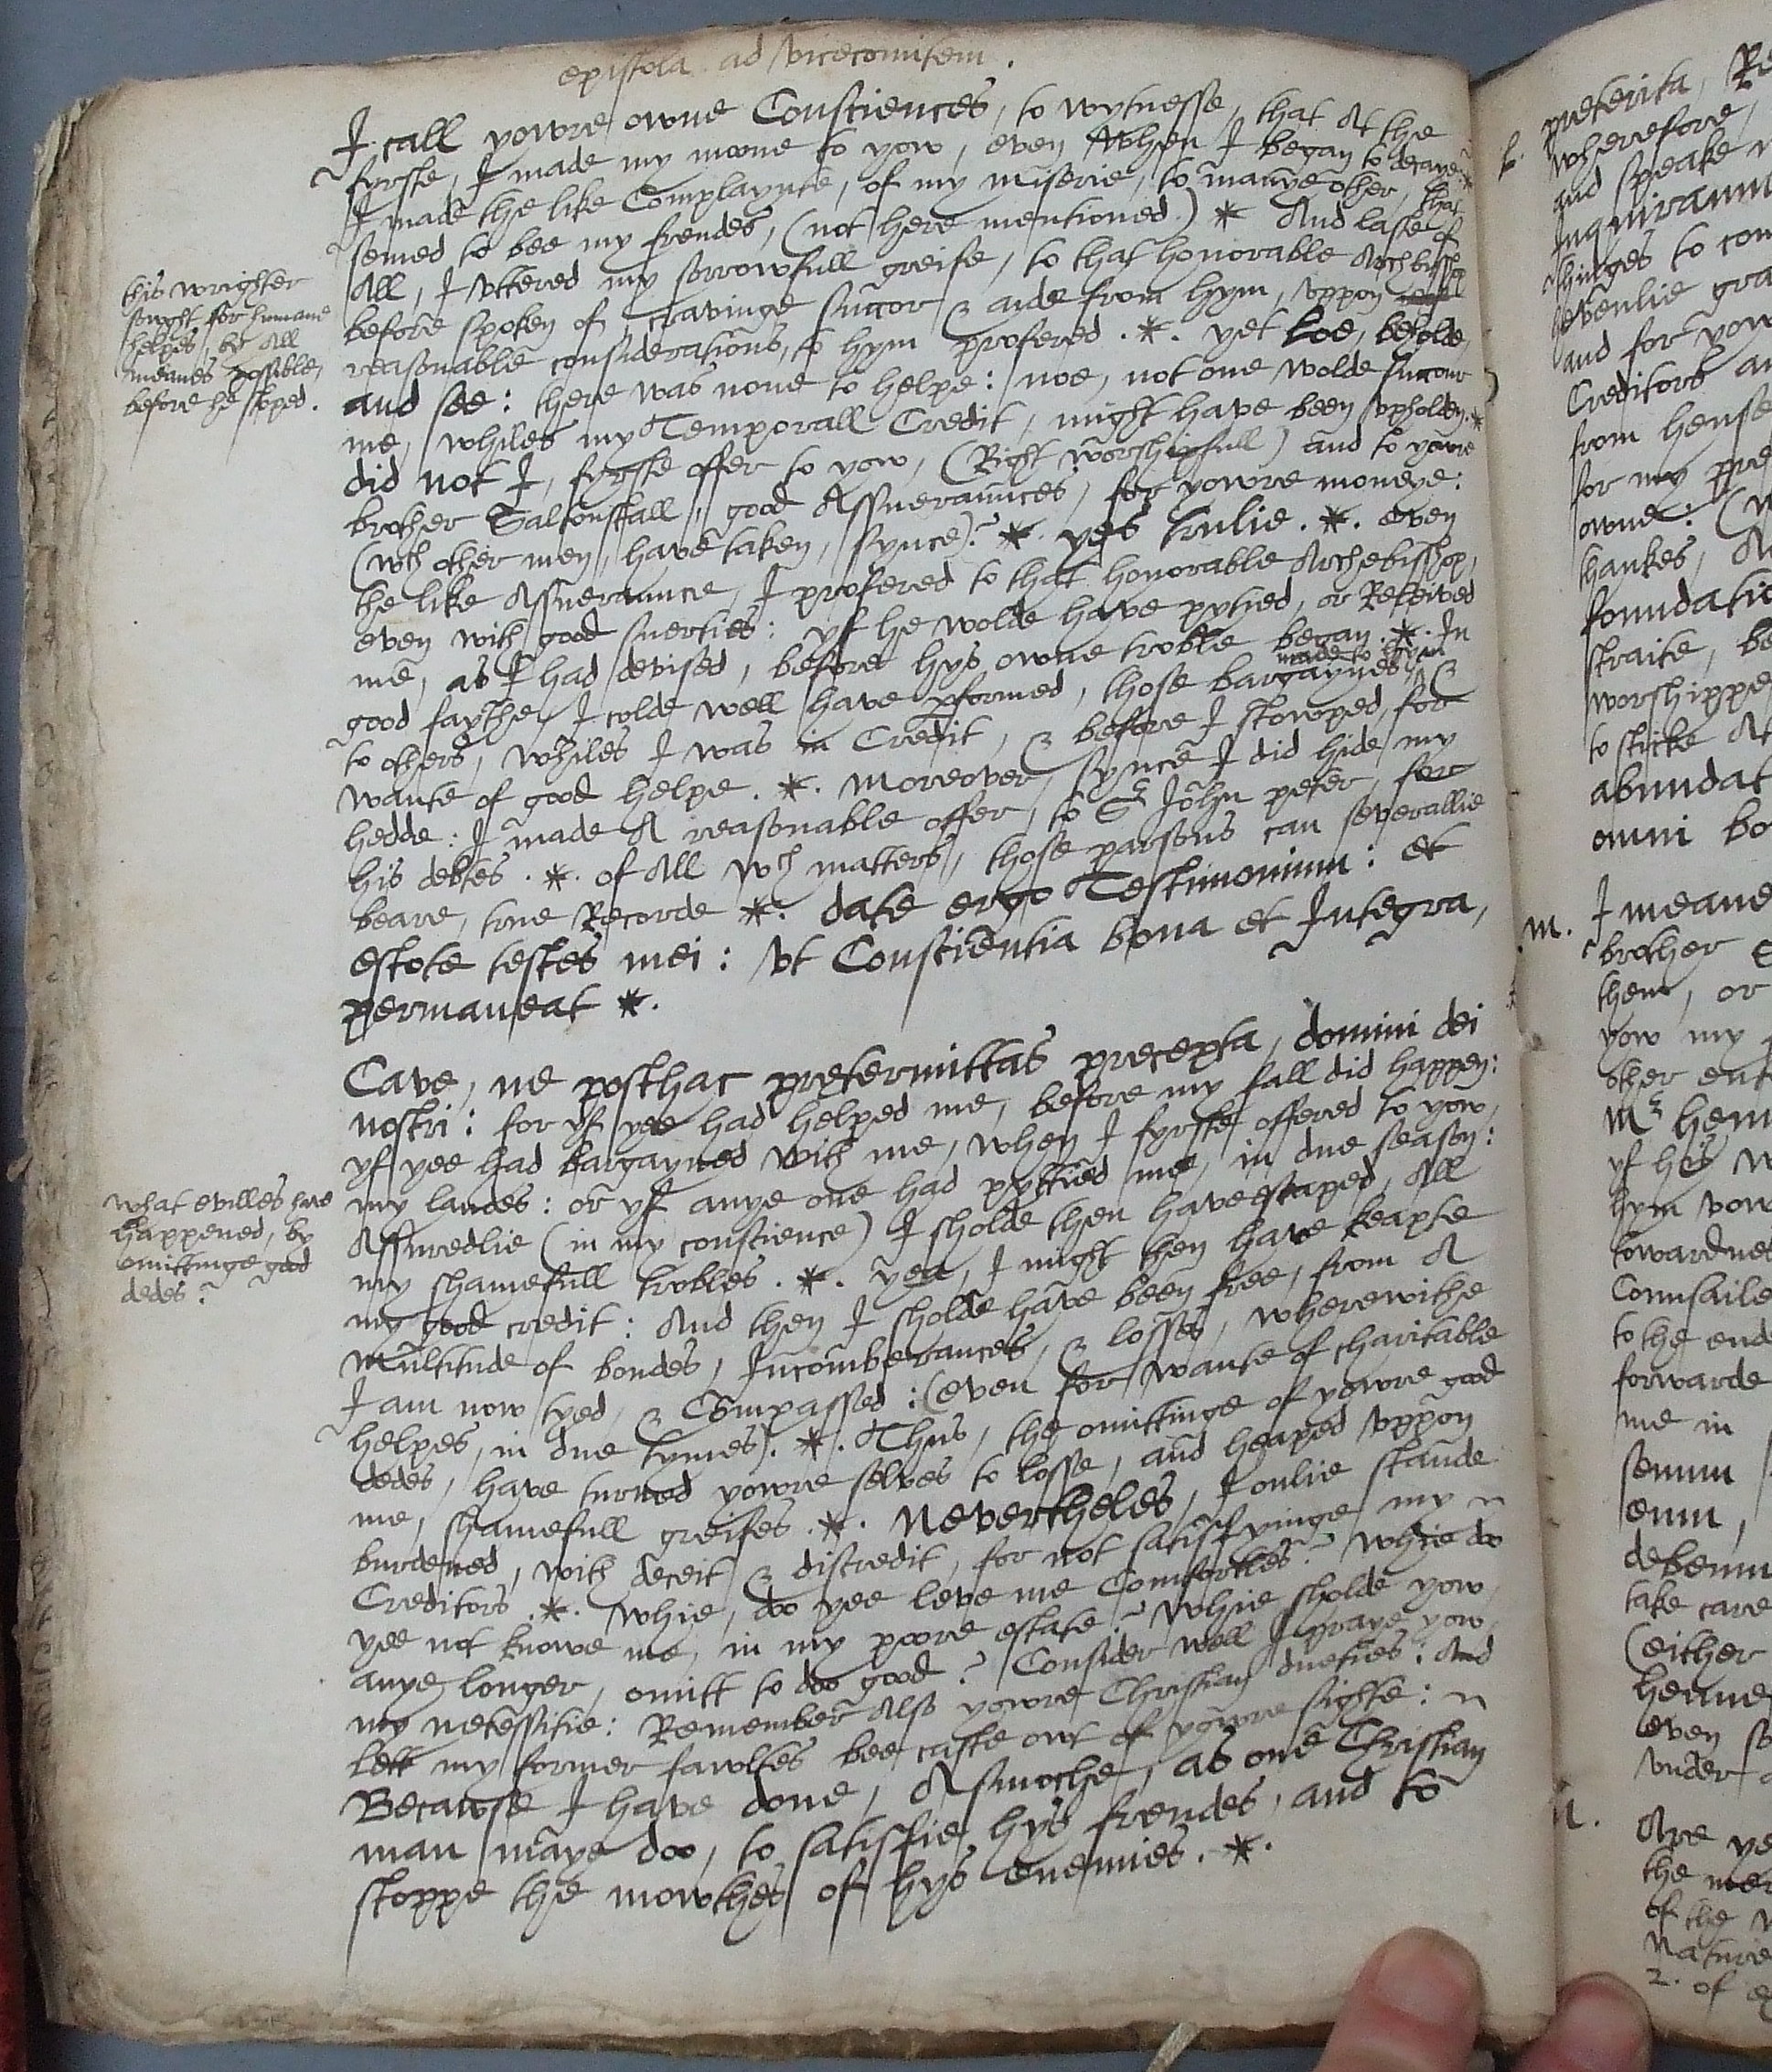 epistola ad vicecomitem.
I call yowre owne Consciences, to wytnesse, that At the
fyrste, I made my mone to yow, even when I began to decaye: *
I made the like Complaynte, of my miserie, to manye other, that
semed to bee my frendes, (not here mentioned.) * And laste of
All, I uttered my sorrowfull greife, to that honorable Archbisshop
before spoken of, cravinge succor & aide from hym, uppon
reasonable considerations, to hym profered. *. yet loe, beholde,
and see: there was none to helpe: noe, not one wolde succour
me, whiles my Temporall Credit, might have been upholden. *
did not I, fyrste offer to yow, (Right worshipfull) and to yowre
brother Saltonstall, good Assueraunces, for yowre moneye:
(wch other men, have taken, synce)? * yes trulie. *. even
the like Assueraunce, I profered to that honorable Archebisshop,
even with good suerties: yf he wolde have pytied, or Received
me, as I had devised, before hys owne troble began. *. In
good faythe, I colde well have pformed, those bargaynes made to hym &
to others, whiles I was in Credit, & before I stowped, for
wante of good helpe. *. Moreover, synce I did hide my
hedde: I made A reasonable offer, to Sr John peter, for
his debtes. *. of All wch matters, those parsons can severallie
beare, true Recorde *. date ergo Testimonium: et
estote testes mei: ut Conscientia bona et Integra,
permaneat *.
Cave, ne posthac pretermittas precepta, domini dei
nostri: for yf yee had helped me, before my fall did happen:
yf yee had bargayned with me, when I fyrste offered to yow,
my landes: or yf anye one had pyttied me, in due season:
Assuredlie (in my conscience) I sholde then have escaped, All
my shamefull trobles. *. yea, I might then have keapte
my good credit: And then I sholde have been free, from A
Multitude of bondes, Incomberances, & losses, wherewithe
I am now tyed, & Compassed: (even for wante of charitable
helpes, in due tymes). *. Thus, the omittinge of yowre good
dedes, have turned yowre selves to losse, and heaped uppon
me, shamefull greifes. *. Nevertheles, I onlie stande
burdened, with deceit & discredit, for not satisfyinge my
Creditors. *. Whie, do yee leve me Comfortles? whie do
yee not knowe me, in my poore estate? Whie sholde yow,
anye longer, omitt to doo good? Consider well I praye yow,
my necessitie: Remember Also yowre Christian dueties: And
lett my former fawltes bee caste owt of yowre sighte:
Becawse I have done, Asmoche, as one Christian
man maye doo, to satisfie hys frendes, and to
stoppe the mowthes of hys enemies. *.
this wrighter
sought for humane
helpes, by All
meanes possible,
before he stoped.
what evilles have
happened, by
omittinge good
dedes?
preterita, Re
wherefore,
and speake
Inquiramu
thinges to com
evenlie gra
and for yow
Creditors an
from hense
for my pre
owne: (w
thankes, A
foundatio
straite, be
worshippe
to sticke At
abundat
omni bo
m. I meane
brother S
them, or
yow my
other ent
Mr henn
yf his w
hym vow
towardnes
Counsaile
to the ende
forwarde
me in
senum
enim,
debemu
take care
(either
henne
even so
under
n. Are ye
the mer
of the
Nature
2. of